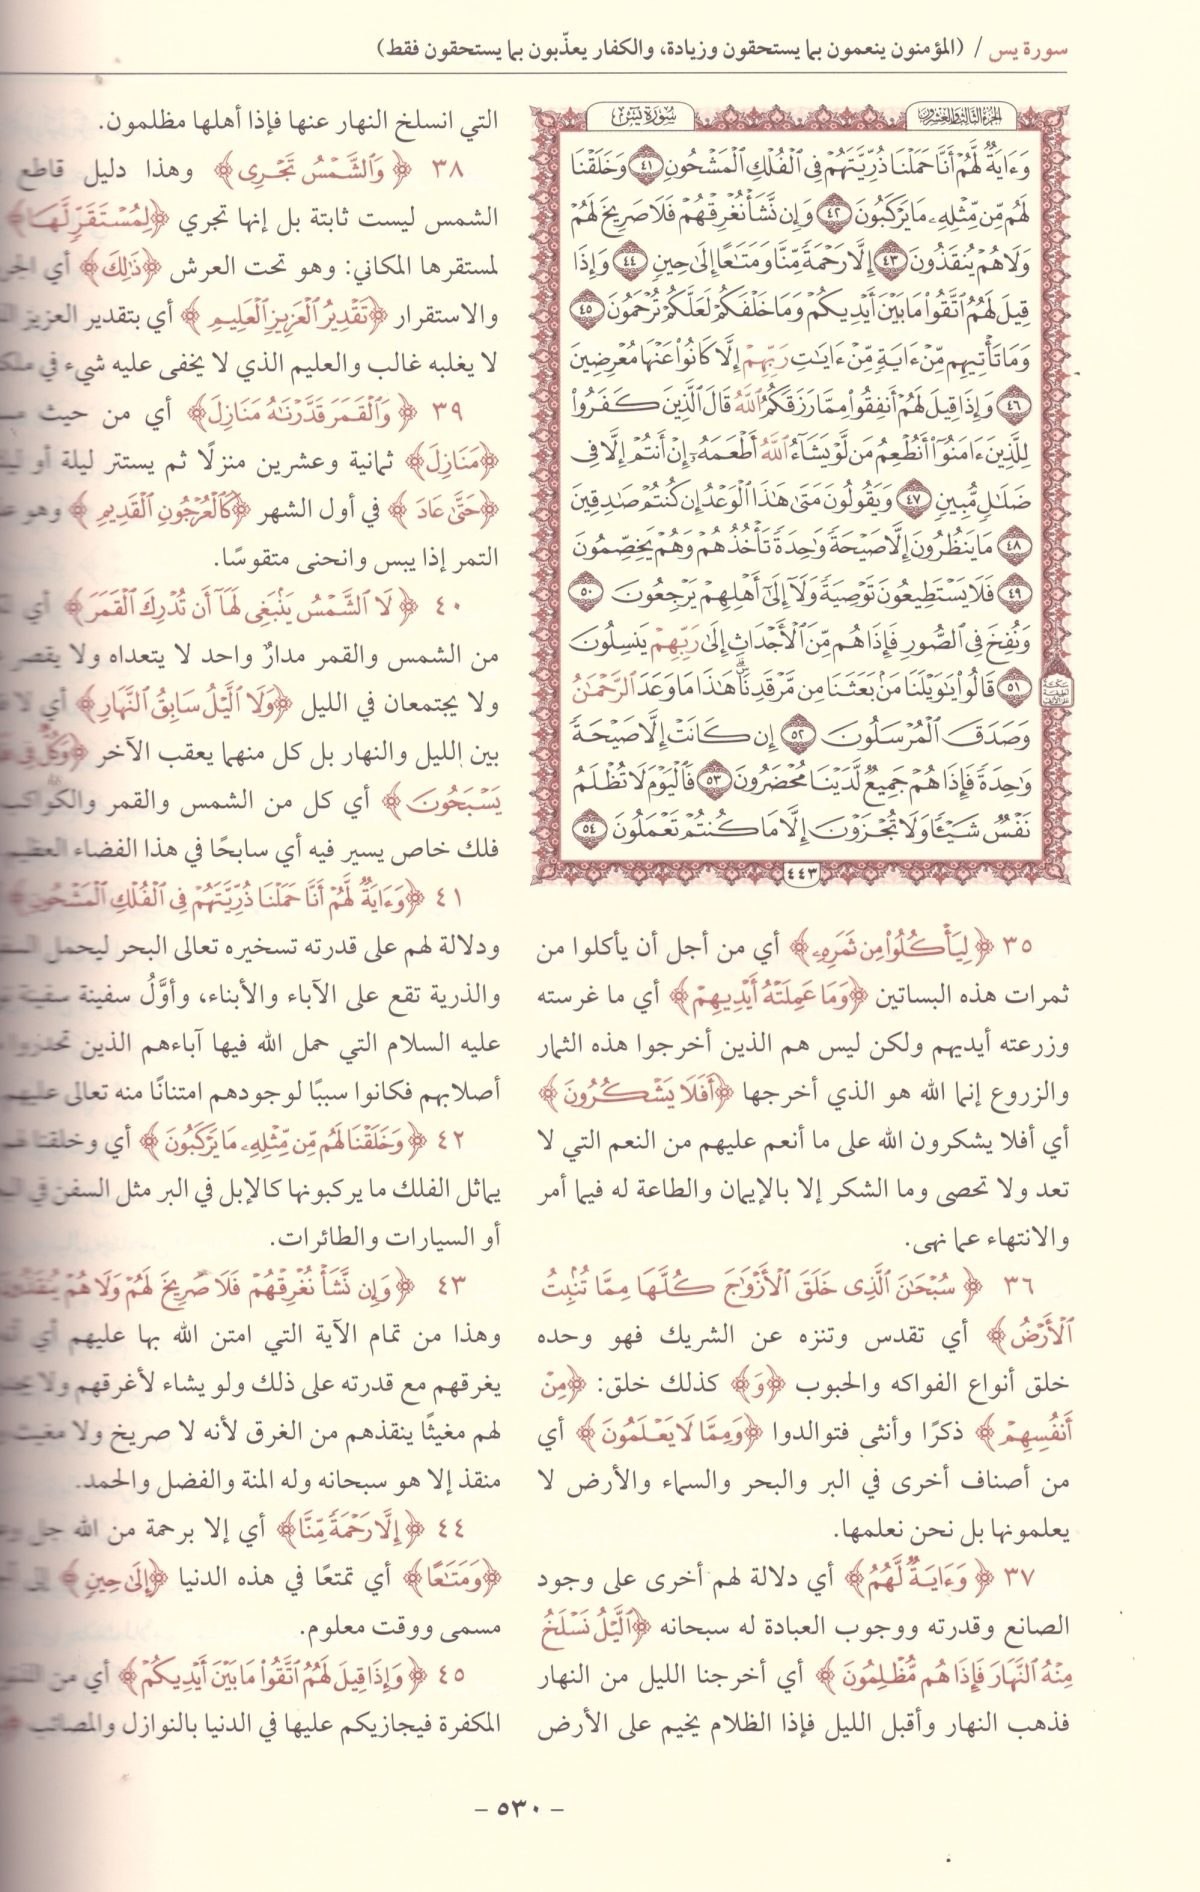 سورة يس / (المؤمنون ينعمون بما يستحقون وزيادة، والكفار يعذّبون بما يستحقون فقط)
الجزء الثالث والعشرون
سورة يس
وَءَايَةٌ لَّهُمْ أَنَّا حَمَلْنَا ذُرِّيَّتَهُمْ فِي الْفُلْكِ الْمَشْحُونِ ٤١ وَخَلَقْنَا
لَهُم مِّن مِّثْلِهِ مَا يَرْكَبُونَ ٤٢ وَإِن نَّشَأْ نُغْرِقْهُمْ فَلَا صَرِيخَ لَهُمْ
وَلَا هُمْ يُنقَذُونَ ٤٣ إِلَّا رَحْمَةً مِّنَّا وَمَتَاعًا إِلَىٰ حِينٍ ٤٤ وَإِذَا
قِيلَ لَهُمُ اتَّقُوا مَا بَيْنَ أَيْدِيكُمْ وَمَا خَلْفَكُمْ لَعَلَّكُمْ تُرْحَمُونَ ٤٥
وَمَا تَأْتِيهِم مِّنْ ءَايَةٍ مِّنْ ءَايَاتِ رَبِّهِمْ إِلَّا كَانُوا عَنْهَا مُعْرِضِينَ
٤٦ وَإِذَا قِيلَ لَهُمْ أَنفِقُوا مِمَّا رَزَقَكُمُ اللَّهُ قَالَ الَّذِينَ كَفَرُوا
لِلَّذِينَ ءَامَنُوا أَنُطْعِمُ مَن لَّوْ يَشَاءُ اللَّهُ أَطْعَمَهُ إِنْ أَنتُمْ إِلَّا فِي
ضَلَالٍ مُّبِينٍ ٤٧ وَيَقُولُونَ مَتَىٰ هَٰذَا الْوَعْدُ إِن كُنتُمْ صَادِقِينَ
٤٨ مَا يَنظُرُونَ إِلَّا صَيْحَةً وَاحِدَةً تَأْخُذُهُمْ وَهُمْ يَخِصِّمُونَ
٤٩ فَلَا يَسْتَطِيعُونَ تَوْصِيَةً وَلَا إِلَىٰ أَهْلِهِمْ يَرْجِعُونَ ٥٠
وَنُفِخَ فِي الصُّورِ فَإِذَا هُم مِّنَ الْأَجْدَاثِ إِلَىٰ رَبِّهِمْ يَنسِلُونَ
٥١ قَالُوا يَاوَيْلَنَا مَن بَعَثَنَا مِن مَّرْقَدِنَا ۜ هَٰذَا مَا وَعَدَ الرَّحْمَٰنُ
وَصَدَقَ الْمُرْسَلُونَ ٥٢ إِن كَانَتْ إِلَّا صَيْحَةً
وَاحِدَةً فَإِذَا هُمْ جَمِيعٌ لَّدَيْنَا مُحْضَرُونَ ٥٣ فَالْيَوْمَ لَا تُظْلَمُ
نَفْسٌ شَيْئًا وَلَا تُجْزَوْنَ إِلَّا مَا كُنتُمْ تَعْمَلُونَ ٥٤
٤٤٣
٣٥ ﴿لِيَأْكُلُوا مِن ثَمَرِهِ﴾ أي من أجل أن يأكلوا من
ثمرات هذه البساتين ﴿وَمَا عَمِلَتْهُ أَيْدِيهِمْ﴾ أي ما غرسته
وزرعته أيديهم ولكن ليس هم الذين أخرجوا هذه الثمار
والزروع إنما الله هو الذي أخرجها ﴿أَفَلَا يَشْكُرُونَ﴾
أي أفلا يشكرون الله على ما أنعم عليهم من النعم التي لا
تعد ولا تحصى وما الشكر إلا بالإيمان والطاعة له فيما أمر
والانتهاء عما نهى.
٣٦ ﴿سُبْحَانَ الَّذِي خَلَقَ الْأَزْوَاجَ كُلَّهَا مِمَّا تُنبِتُ
الْأَرْضُ﴾ أي تقدس وتنزه عن الشريك فهو وحده
خلق أنواع الفواكه والحبوب ﴿وَ﴾ كذلك خلق: ﴿مِنْ
أَنفُسِهِمْ﴾ ذكرًا وأنثى فتوالدوا ﴿وَمِمَّا لَا يَعْلَمُونَ﴾ أي
من أصناف أخرى في البر والبحر والسماء والأرض لا
يعلمونها بل نحن نعلمها.
٣٧ ﴿وَءَايَةٌ لَّهُمُ﴾ أي دلالة لهم أخرى على وجود
الصانع وقدرته ووجوب العبادة له سبحانه ﴿الَّيْلُ نَسْلَخُ
مِنْهُ النَّهَارَ فَإِذَا هُم مُّظْلِمُونَ﴾ أي أخرجنا الليل من النهار
فذهب النهار وأقبل الليل فإذا الظلام يخيم على الأرض
التي انسلخ النهار عنها فإذا أهلها مظلمون.
٣٨ ﴿وَالشَّمْسُ تَجْرِي﴾ وهذا دليل قاطع
الشمس ليست ثابتة بل إنها تجري ﴿لِمُسْتَقَرٍّ لَّهَا﴾
لمستقرها المكاني: وهو تحت العرش ﴿ذَٰلِكَ﴾ أي
والاستقرار ﴿تَقْدِيرُ الْعَزِيزِ الْعَلِيمِ﴾ أي بتقدير العزيز
لا يغلبه غالب والعليم الذي لا يخفى عليه شيء في
٣٩ ﴿وَالْقَمَرَ قَدَّرْنَاهُ مَنَازِلَ﴾ أي من حيث
﴿مَنَازِلَ﴾ ثمانية وعشرين منزلًا ثم يستتر ليلة أو
﴿حَتَّىٰ عَادَ﴾ في أول الشهر ﴿كَالْعُرْجُونِ الْقَدِيمِ﴾ وهو
التمر إذا يبس وانحنى متقوسًا.
٤٠ ﴿لَا الشَّمْسُ يَنبَغِي لَهَا أَن تُدْرِكَ الْقَمَرَ﴾ أي
من الشمس والقمر مدارٌ واحد لا يتعداه ولا يقصر
ولا يجتمعان في الليل ﴿وَلَا الَّيْلُ سَابِقُ النَّهَارِ﴾ أي
بين الليل والنهار بل كل منهما يعقب الآخر ﴿وَكُلٌّ فِي
يَسْبَحُونَ﴾ أي كل من الشمس والقمر والكواكب
فلك خاص يسير فيه أي سابحًا في هذا الفضاء العظيم
٤١ ﴿وَءَايَةٌ لَّهُمْ أَنَّا حَمَلْنَا ذُرِّيَّتَهُمْ فِي الْفُلْكِ الْمَشْحُونِ﴾
ودلالة لهم على قدرته تسخيره تعالى البحر ليحمل
والذرية تقع على الآباء والأبناء، وأوَّلُ سفينة سفينة
عليه السلام التي حمل الله فيها آباءهم الذين تحدروا
أصلابهم فكانوا سببًا لوجودهم امتنانًا منه تعالى عليهم
٤٢ ﴿وَخَلَقْنَا لَهُم مِّن مِّثْلِهِ مَا يَرْكَبُونَ﴾ أي وخلقنا لهم
يماثل الفلك ما يركبونها كالإبل في البر مثل السفن في
أو السيارات والطائرات.
٤٣ ﴿وَإِن نَّشَأْ نُغْرِقْهُمْ فَلَا صَرِيخَ لَهُمْ وَلَا هُمْ يُنقَذُونَ
وهذا من تمام الآية التي امتن الله بها عليهم أي
يغرقهم مع قدرته على ذلك ولو يشاء لأغرقهم ولا
لهم مغيثًا ينقذهم من الغرق لأنه لا صريخ ولا مغيث
منقذ إلا هو سبحانه وله المنة والفضل والحمد.
٤٤ ﴿إِلَّا رَحْمَةً مِّنَّا﴾ أي إلا برحمة من الله جل
﴿وَمَتَاعًا﴾ أي تمتعًا في هذه الدنيا ﴿إِلَىٰ حِينٍ﴾ إلى
مسمى ووقت معلوم.
٤٥ ﴿وَإِذَا قِيلَ لَهُمُ اتَّقُوا مَا بَيْنَ أَيْدِيكُمْ﴾ أي من
المكفرة فيجازيكم عليها في الدنيا بالنوازل والمصائب
- ٥٣٠ -